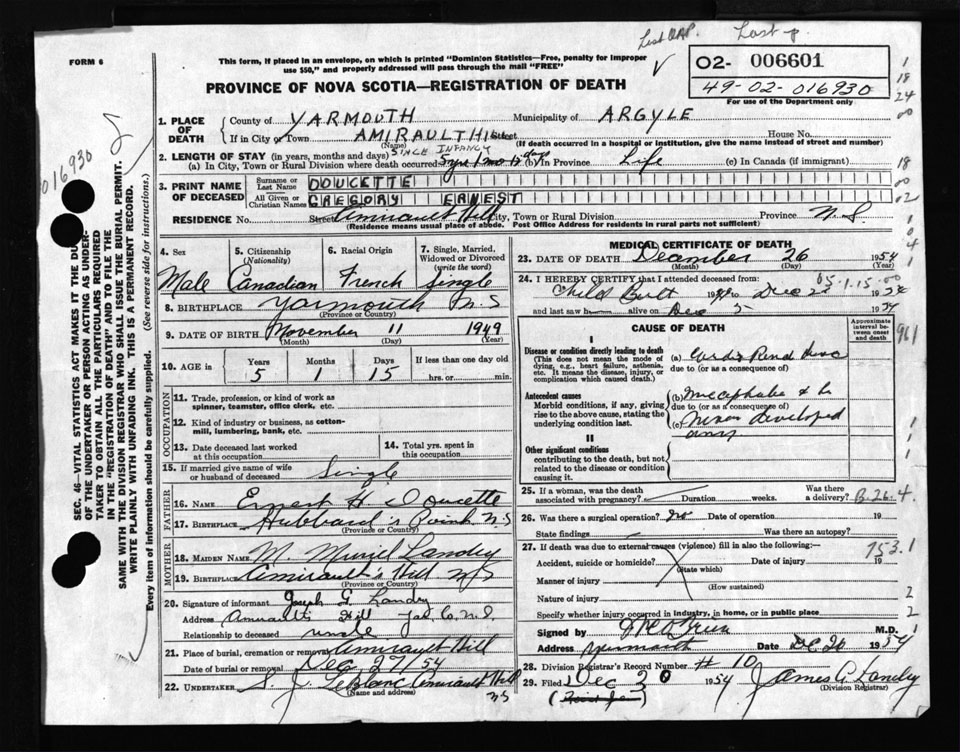 List
Last
FORM 6
This form, if placed in an envelope, on which is printed "Dominion Statistics—Free, penalty for improper
use $50," and properly addressed will pass through the mail "FREE"
O2- 006601
PROVINCE OF NOVA SCOTIA—REGISTRATION OF DEATH
49-02-016930
For use of the Department only
1. PLACE OF DEATH
County of YARMOUTH Municipality of ARGYLE
If in City or Town AMIRAULTHILL Street House No.
(Name) (If death occurred in a hospital or institution, give the name instead of street and number)
2. LENGTH OF STAY (in years, months and days) SINCE INFANCY
(a) In City, Town or Rural Division where death occurred 5 yrs 1 mo 15 days (b) in Province Life (c) In Canada (if immigrant)
3. PRINT NAME OF DECEASED
Surname or Last Name DOUCETTE
All Given or Christian Names GREGORY ERNEST
RESIDENCE No. Street Amirault Hill City, Town or Rural Division Province N.S
(Residence means usual place of abode. Post Office Address for residents in rural parts not sufficient)
4. Sex Male
5. Citizenship (Nationality) Canadian
6. Racial Origin French
7. Single, Married, Widowed or Divorced (write the word) Single
8. BIRTHPLACE Yarmouth N.S
(Province or Country)
9. DATE OF BIRTH November 11 1949
(Month) (Day) (Year)
10. AGE in Years 5 Months 1 Days 15 If less than one day old
hrs. or min.
OCCUPATION
11. Trade, profession, or kind of work as
spinner, teamster, office clerk, etc.
12. Kind of industry or business, as cotton-
mill, lumbering, bank, etc.
13. Date deceased last worked
at this occupation
14. Total yrs. spent in
this occupation
15. If married give name of wife
or husband of deceased Single
FATHER
16. NAME Ernest H Doucette
17. BIRTHPLACE Hubbard's Point N.S
(Province or Country)
MOTHER
18. MAIDEN NAME M. Muriel Landry
19. BIRTHPLACE Amirault's Hill N.S
(Province or Country)
20. Signature of informant Joseph G. Landry
Address Amiraults Hill Yar. Co. N.S.
Relationship to deceased uncle
21. Place of burial, cremation or removal Amirault Hill
Date of burial or removal Dec 27/54
22. UNDERTAKER S. J. LeBlanc Amirault Hill
(Name and address) N.S
MEDICAL CERTIFICATE OF DEATH
23. DATE OF DEATH December 26 1954
(Month) (Day) (Year)
24. I HEREBY CERTIFY that I attended deceased from:
05.1.15.00
Child Birth 19 to Dec 1954
and last saw h alive on Dec 5 1954
CAUSE OF DEATH
Approximate interval between onset and death
I
Disease or condition directly leading to death
(This does not mean the mode of dying, e.g., heart failure, asthenia, etc. It means the disease, injury, or complication which caused death.)
(a)
due to (or as a consequence of)
Antecedent causes
Morbid conditions, if any, giving rise to the above cause, stating the underlying condition last.
(b)
due to (or as a consequence of)
(c) Never developed
II
Other significant conditions
contributing to the death, but not related to the disease or condition causing it.
25. If a woman, was the death
associated with pregnancy? Duration weeks. Was there a delivery? B.26.4.
26. Was there a surgical operation? No Date of operation 19
State findings Was there an autopsy?
27. If death was due to external causes (violence) fill in also the following:—
753.1
Accident, suicide or homicide? Date of injury 19
(State which)
Manner of injury
(How sustained)
Nature of injury
Specify whether injury occurred in industry, in home, or in public place
Signed by M.D.
Address Yarmouth Date Dec. 26 1954
28. Division Registrar's Record Number # 10
29. Filed Dec 30 1954 James G. Landry
(Division Registrar)
016930
SEC. 46— VITAL STATISTICS ACT MAKES IT THE DUTY
OF THE UNDERTAKER OR PERSON ACTING AS UNDER-
TAKER TO OBTAIN ALL THE PARTICULARS REQUIRED
IN THE "REGISTRATION OF DEATH" AND TO FILE THE
SAME WITH THE DIVISION REGISTRAR WHO SHALL ISSUE THE BURIAL PERMIT.
WRITE PLAINLY WITH UNFADING INK. THIS IS A PERMANENT RECORD.
Every item of information should be carefully supplied. (See reverse side for instructions.)
1
18
24
18
00
02
961
2
2